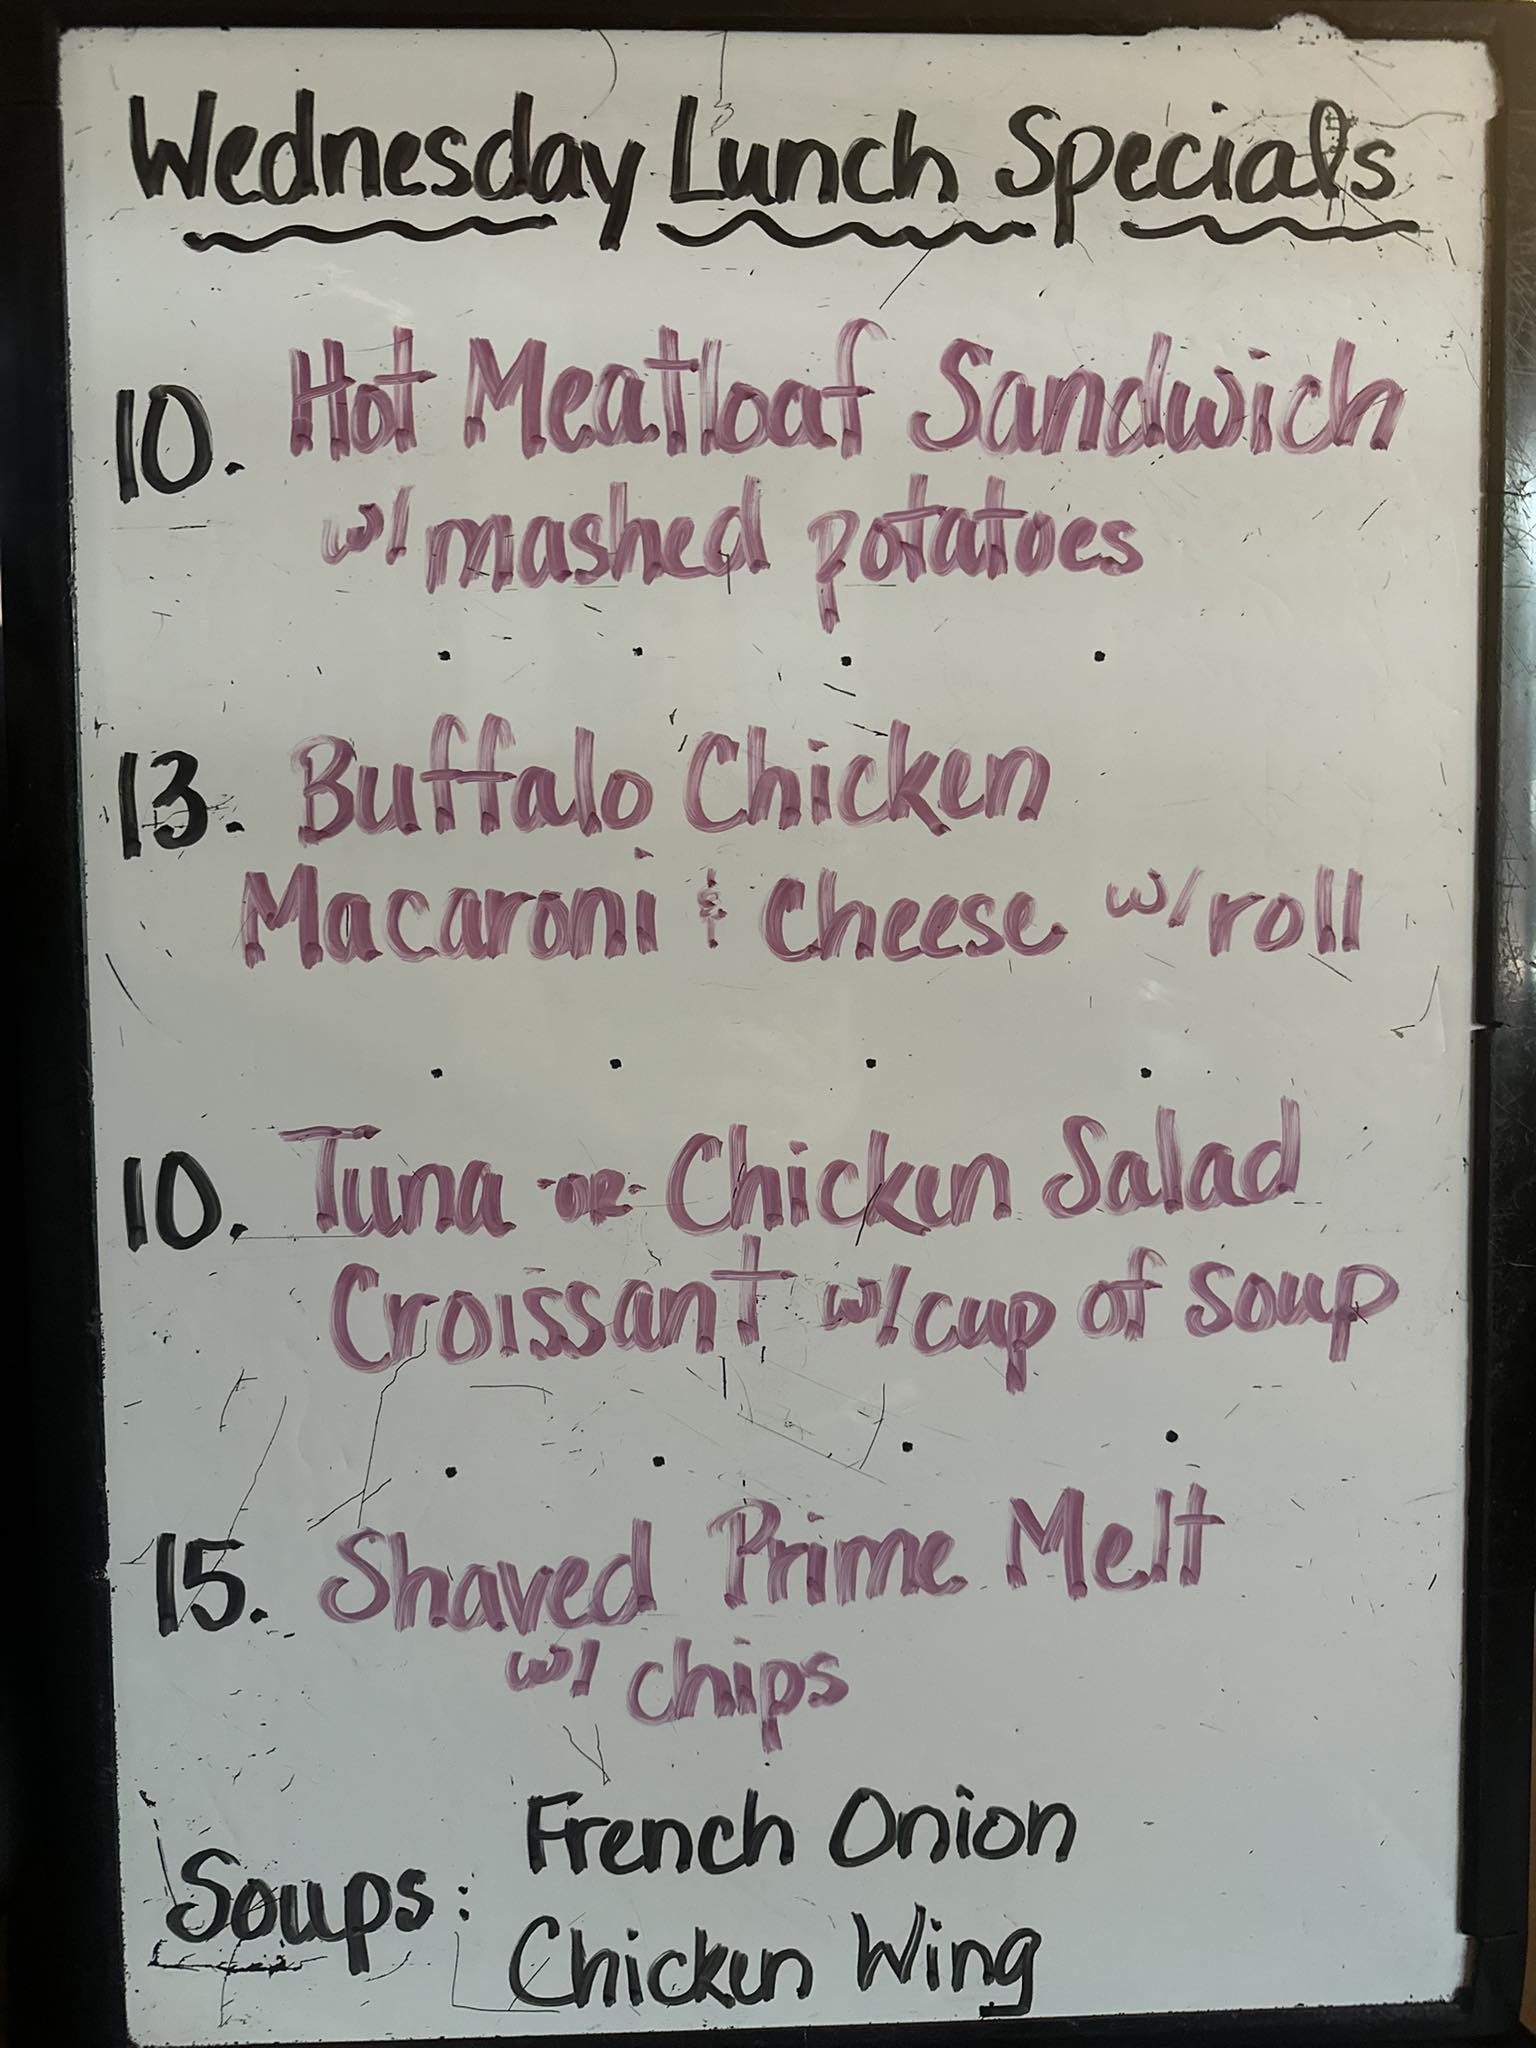 Wednesday Lunch Specials
10. Hot Meatloaf Sandwich
w/ mashed potatoes
13. Buffalo Chicken
Macaroni & Cheese w/ roll
10. Tuna -or- Chicken Salad
Croissant w/ cup of soup
15. Shaved Prime Melt
w/ chips
Soups: French Onion
Chicken Wing